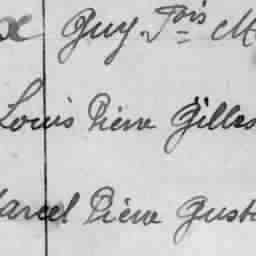 x Guy Fois M
Louis Pierre Gilles
Marcel Pierre Gust